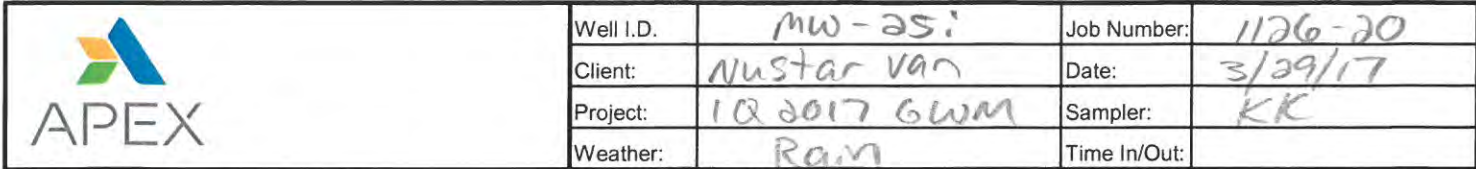 Well I.D. MW-25i Job Number: 1126-20
Client: Nustar Van Date: 3/29/17
APEX Project: 1Q 2017 GWM Sampler: KK
Weather: Rain Time In/Out: